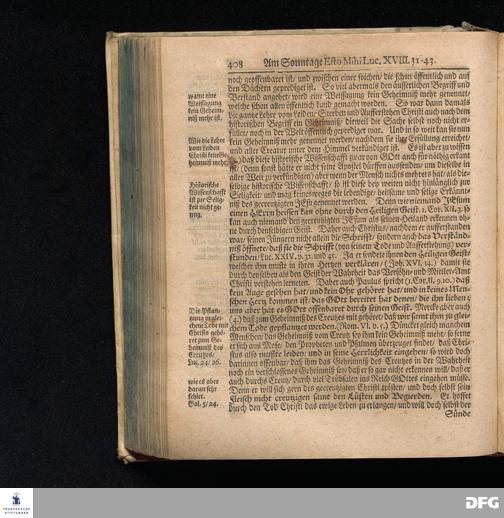 408 Am Sonntage Esto Mihi Luc. XVIII. 31-43.
noch geoffenbaret ist/ und zwischen einer solchen/ die schon öffentlich und auf
den Dächern geprediget ist. So viel abermals den äusserlichen Begriff und
Verstand angehet/ wird eine Weissagung kein Geheimniß mehr genennet/
welche schon allen öffentlich kund gemacht worden. So war dann damals
die gantze Lehre vom Leiden/ Sterben und Aufferstehen Christi auch nach dem
historischen Begriff ein Geheimniß/ dieweil die Sache selbst noch nicht er-
füllet/ noch in der Welt öffentlich geprediget war. Und in so weit kan sie nun
kein Geheimniß mehr genennet werden/ nachdem sie ihre Erfüllung erreichet/
und aller Creatur unter dem Himmel verkündiget ist. Es ist aber zu wissen
daß diese historische Wissenschafft zwar von GOtt auch für nöthig erkant
ist/ (denn sonst hätte er nicht seine Apostel dürffen aussenden/ um dieselbe in
aller Welt zu verkündigen) aber wenn der Mensch nichts mehrers hat/ als die-
selbige historische Wissenschafft/ so ist diese bey weiten nicht hinlänglich zur
Seligkeit/ und mag keinesweges die lebendige/ heilsame und selige Erkäntniß
des gecreutzigten JEsu genennet werden. Denn wie niemand JEsum
einen HErrn heissen kan ohne durch den Heiligen Geist. 1. Cor. XII, 3. so
kan auch niemand den gecreutzigten JEsum als seinen Heiland erkennen oh-
ne durch denselbigen Geist. Daher auch Christus/ nachdem er aufferstanden
war/ seinen Jüngern nicht allein die Schrifft/ sondern auch das Verständ-
niß öffnete/ daß sie die Schrifft (von seinem Tode und Aufferstehung) ver-
stunden/ Luc. XXIV. v. 32. und 45. Ja er sendete ihnen den Heiligen Geist/
welcher ihm muste in ihren Hertzen verklären/ (Joh. XVI, 14.) damit sie
durch denselben als den Geist der Wahrheit das Versöhn- und Mittler-Amt
Christi verstehen lerneten. Daher auch Paulus spricht (1. Cor. II, 9. 10.) daß
kein Auge gesehen hat/ und kein Ohr gehöret hat/ und in keines Men-
schen Hertz kommen ist/ das GOtt bereitet hat denen/ die ihn lieben;
uns aber hat es GOtt offenbaret durch seinen Geist. Mercke aber auch
(4.) daß zum Geheimniß des Creutzes mit gehöret/ daß wir samt ihm zu glei-
chem Tode gepflantzet werden. (Rom. VI. v. 5.) Düncket gleich manchem
Menschen/ das Geheimniß vom Creutz sey ihm kein Geheimniß mehr/ so ferne
er sich aus Mose/ den Propheten und Psalmen überzeuget findet/ daß Chri-
stus also muste leiden/ und in seine Herrlichkeit eingehen/ so wird doch
darinnen offenbar/ daß ihm das Geheimniß des Creutzes in der Wahrheit
noch ein verschlossenes Geheimniß sey/ daß er so gar nicht erkennen will/ daß er
auch durchs Creutz/ durch viel Trübsalen ins Reich GOttes eingehen müsse.
Denn er will sich gern des gecreutzigten Christi trösten/ und doch selbst sein
Fleisch nicht creutzigen samt den Lüsten und Begierden. Er hoffet
durch den Tod Christi das ewige Leben zu erlangen/ und will doch selbst der
Sünde
wann eine
Weissagung
kein Geheim-
niß mehr ist.
Wie die Lehre
vom Leiden
Christi kein Ge-
heimniß mehr.
Historische
Wissenschafft
ist zur Selig-
keit nicht ge-
nug.
Die Pflan-
tzung zu glei-
chem Tode mit
Christo gehö-
ret zum Ge-
heimniß des
Creutzes/
Luc. 24/26.
wie es aber
daran sehr
fehlet.
Gal. 5/24.
FRANCKESCHE
STIFTUNGEN
DFG